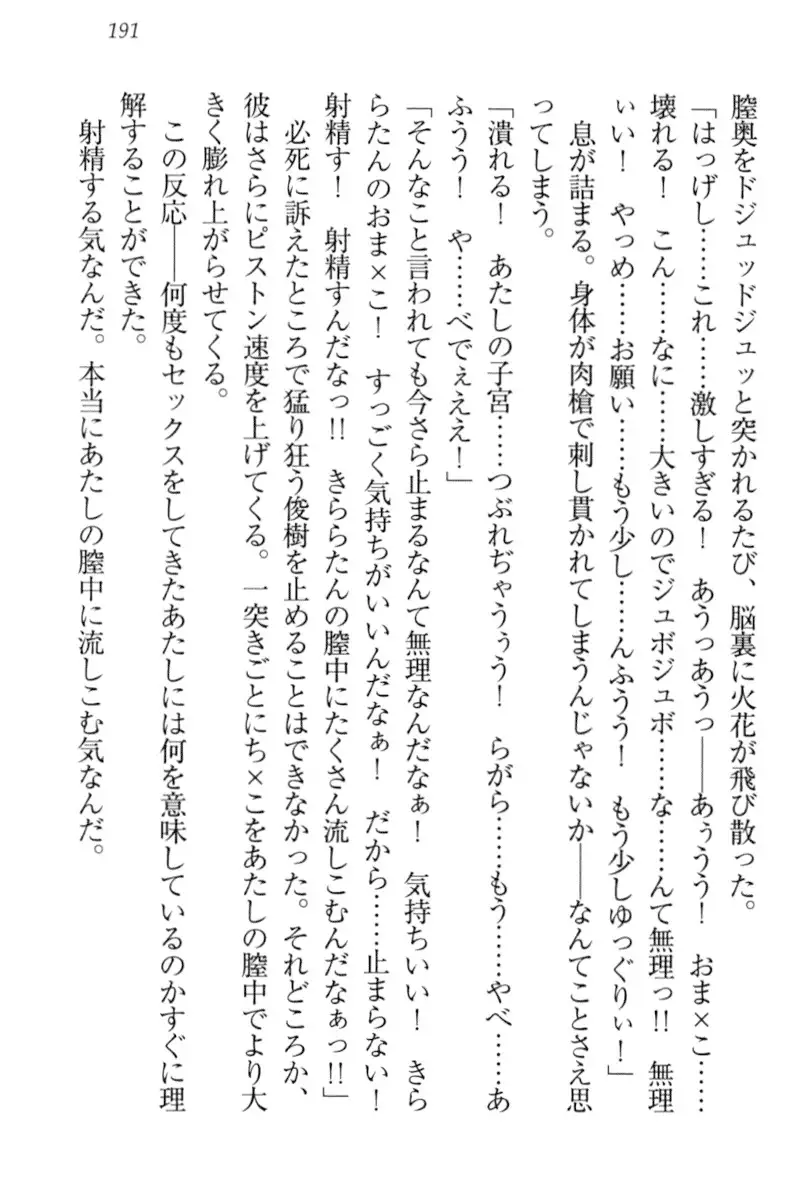 191
膣奥をドジュッドジュッと突かれるたび、脳裏に火花が飛び散った。
「はっげし……これ……激しすぎる！　あうっあうっ――あぅうう！　おま×こ……
壊れる！　こん……なに……大きいのでジュボジュボ……な……んて無理っ!!　無理
ぃい！　やっめ……お願い……もう少し……んふうう！　もう少しゆっぐりぃ！」
息が詰まる。身体が肉槍で刺し貫かれてしまうんじゃないか――なんてことさえ思
ってしまう。
「潰れる！　あたしの子宮……つぶれぢゃうぅう！　らがら……もう……やべ……あ
ふうう！　や……べでぇええ！」
「そんなこと言われても今さら止まるなんて無理なんだなぁ！　気持ちいい！　きら
らたんのおま×こ！　すっごく気持ちがいいんだなぁ！　だから……止まらない！
射精す！　射精すんだなっ!!　きららたんの膣中にたくさん流しこむんだなぁっ!!」
必死に訴えたところで猛り狂う俊樹を止めることはできなかった。それどころか、
彼はさらにピストン速度を上げてくる。一突きごとにち×こをあたしの膣中でより大
きく膨れ上がらせてくる。
この反応――何度もセックスをしてきたあたしには何を意味しているのかすぐに理
解することができた。
射精する気なんだ。本当にあたしの膣中に流しこむ気なんだ。